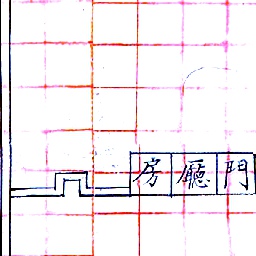 房廳門